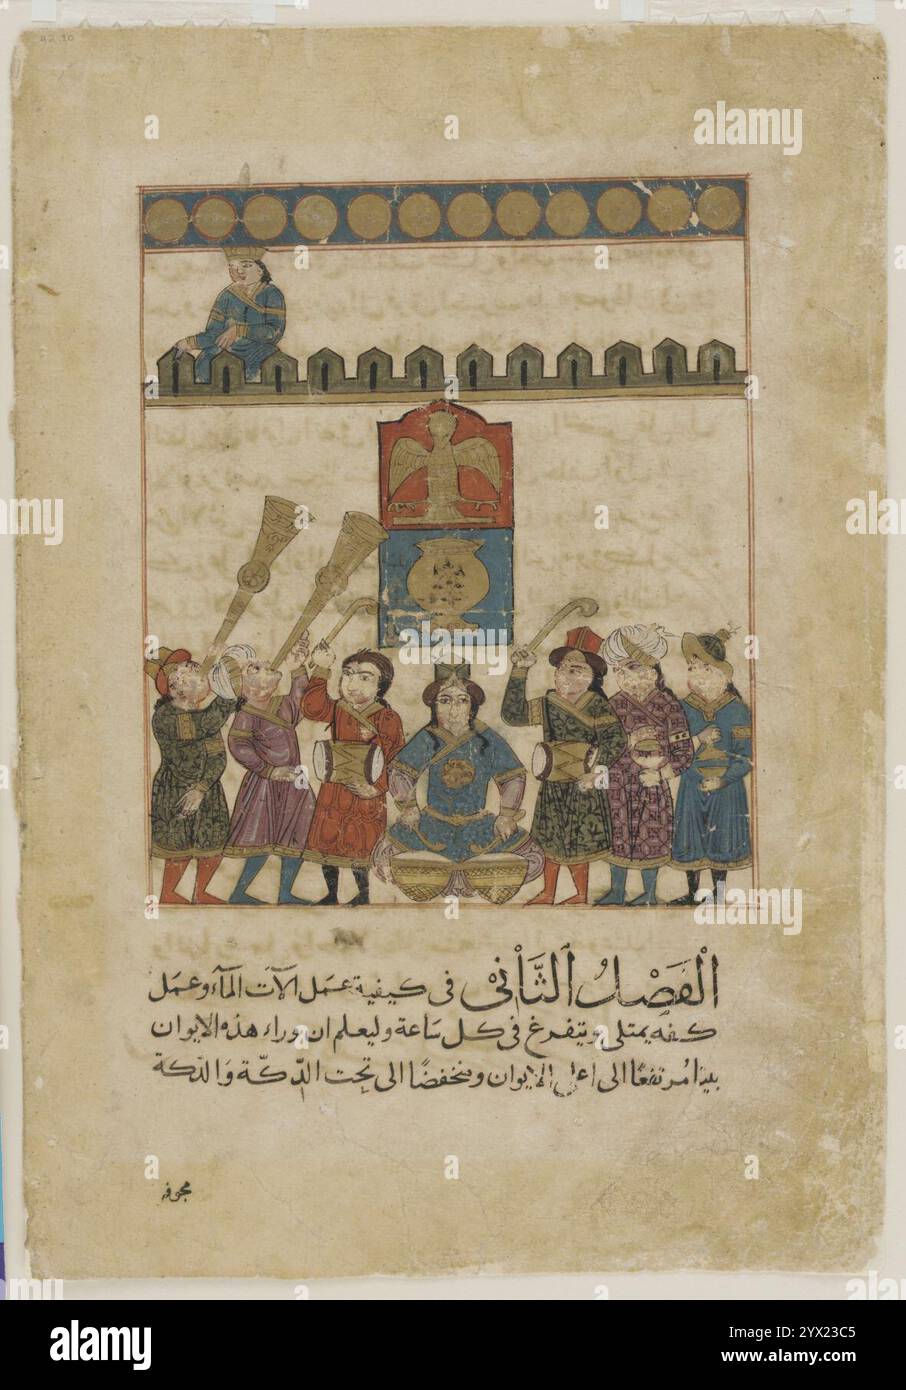 42.10
الفَصْلُ الثَّانِى فى كيفية عمَل الآت المآء وعمَل
كفه يمتلى ويتفرغ فى كل سَاعة وليعلم ان وراء هذه الايوان
بيتا مُرتفعًا الى اعلى الايوان ومنخفضًا الى تحت الدّكّة وَالدّكة
مجوفة
alamy
Image ID: 2YX23C5
www.alamy.com